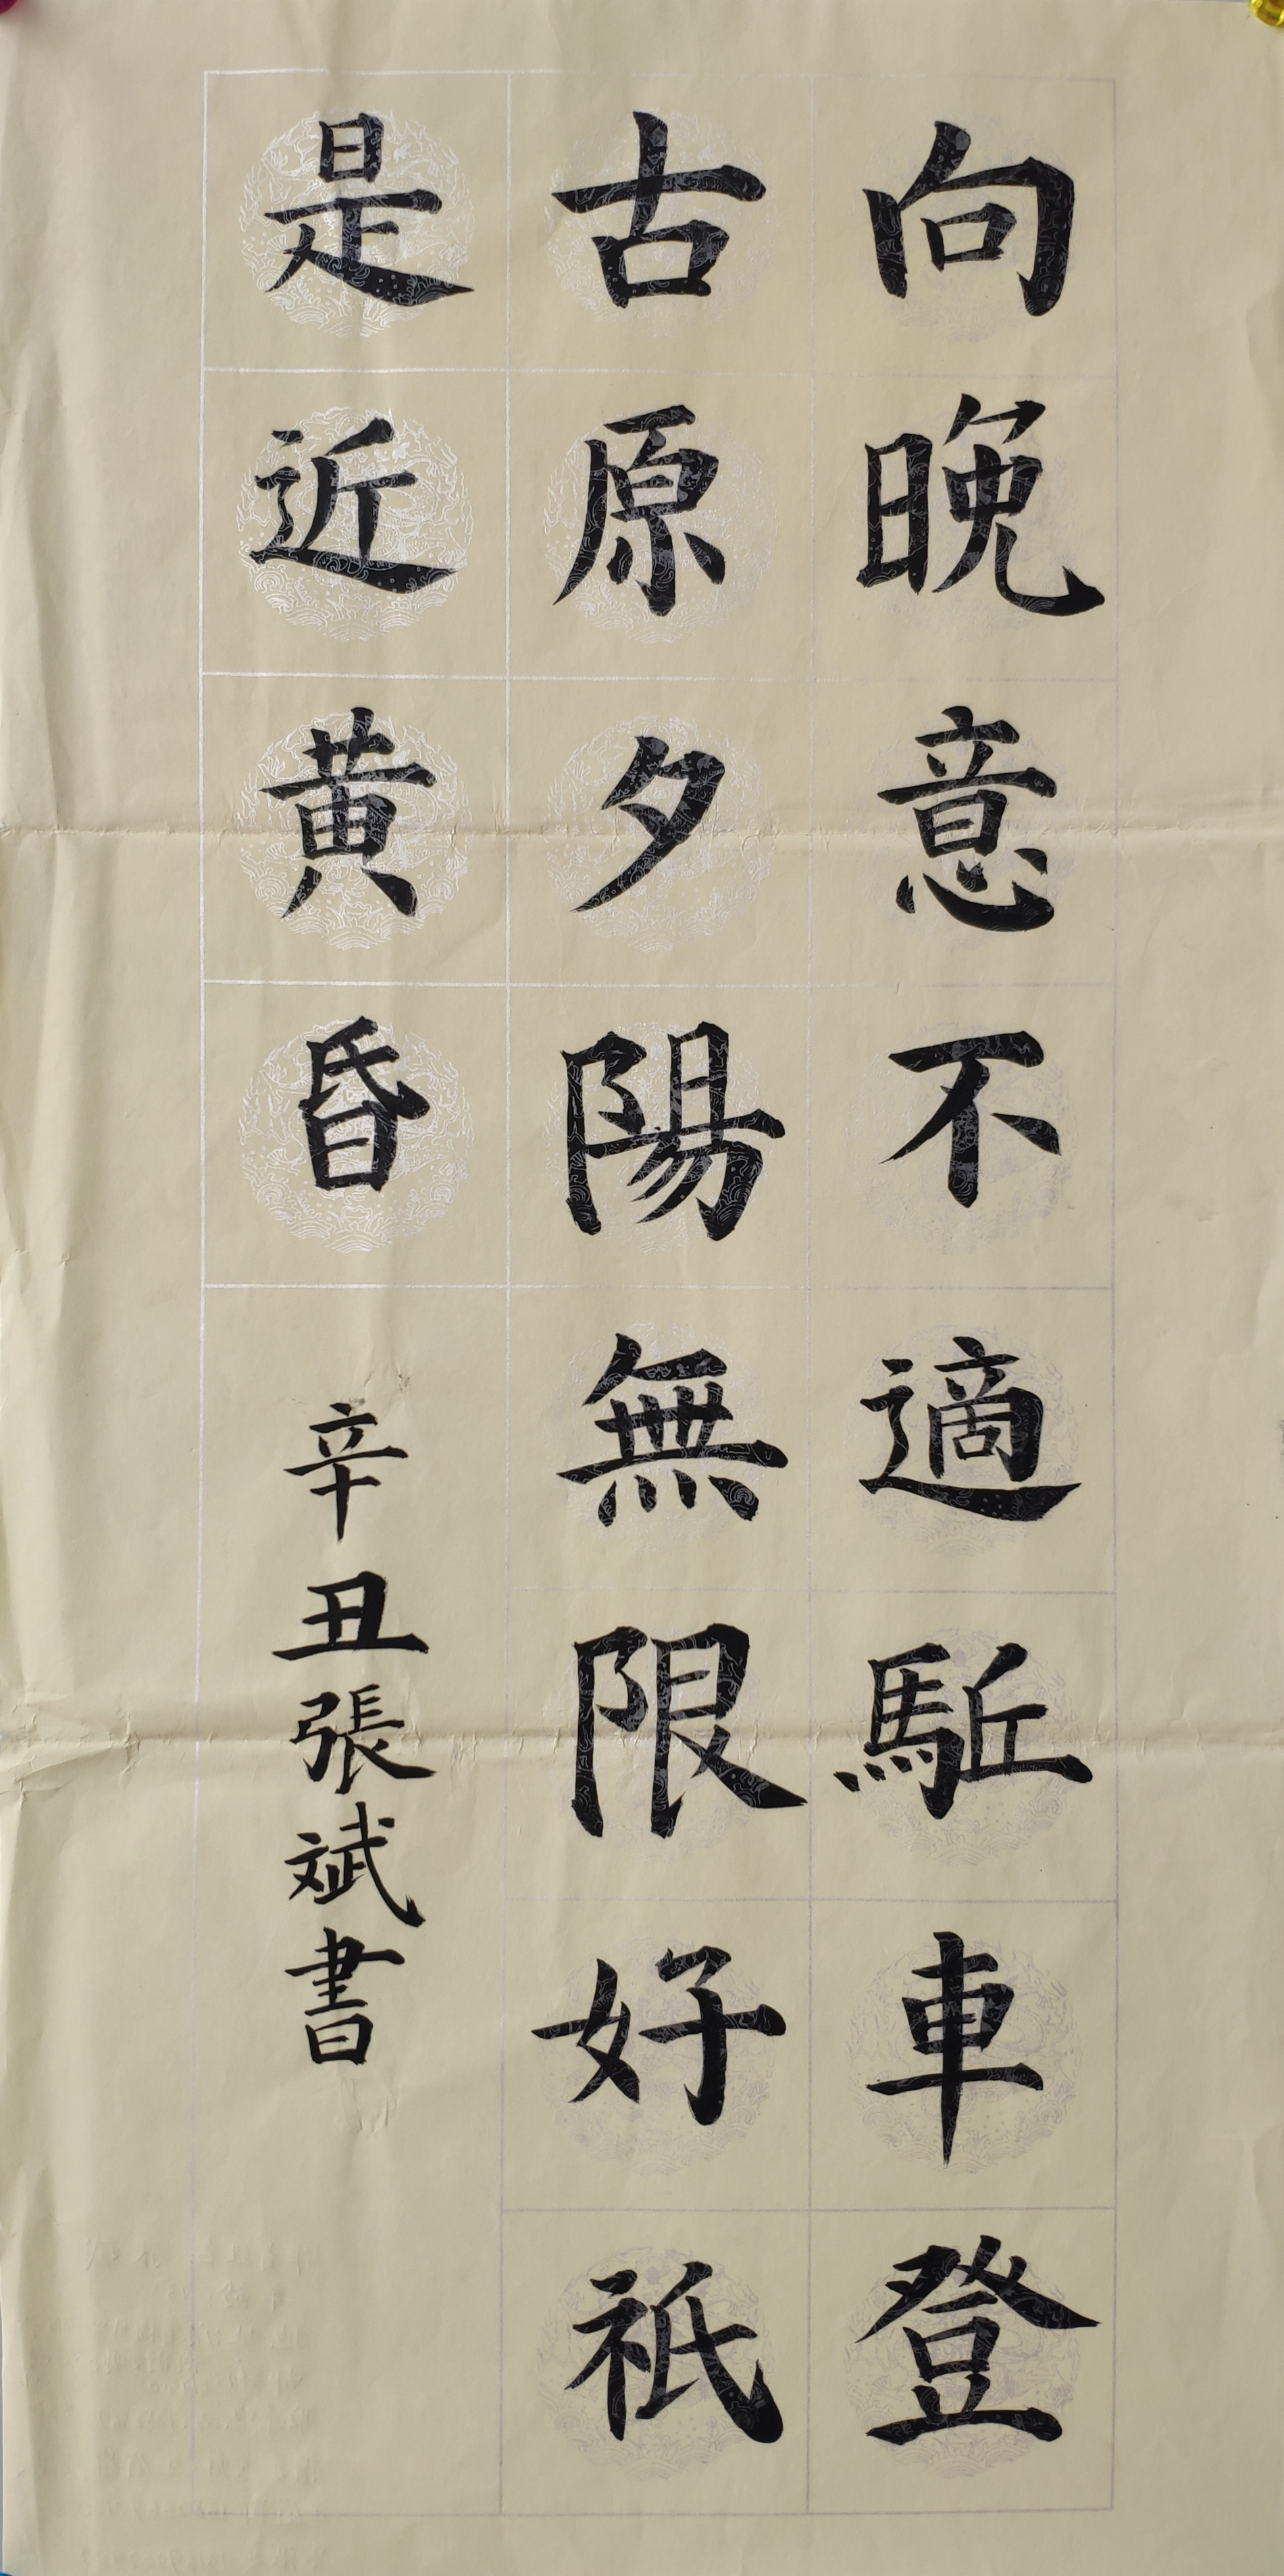 向晚意不適駈車登
古原夕陽無限好祇
是近黄昏
辛丑張斌書